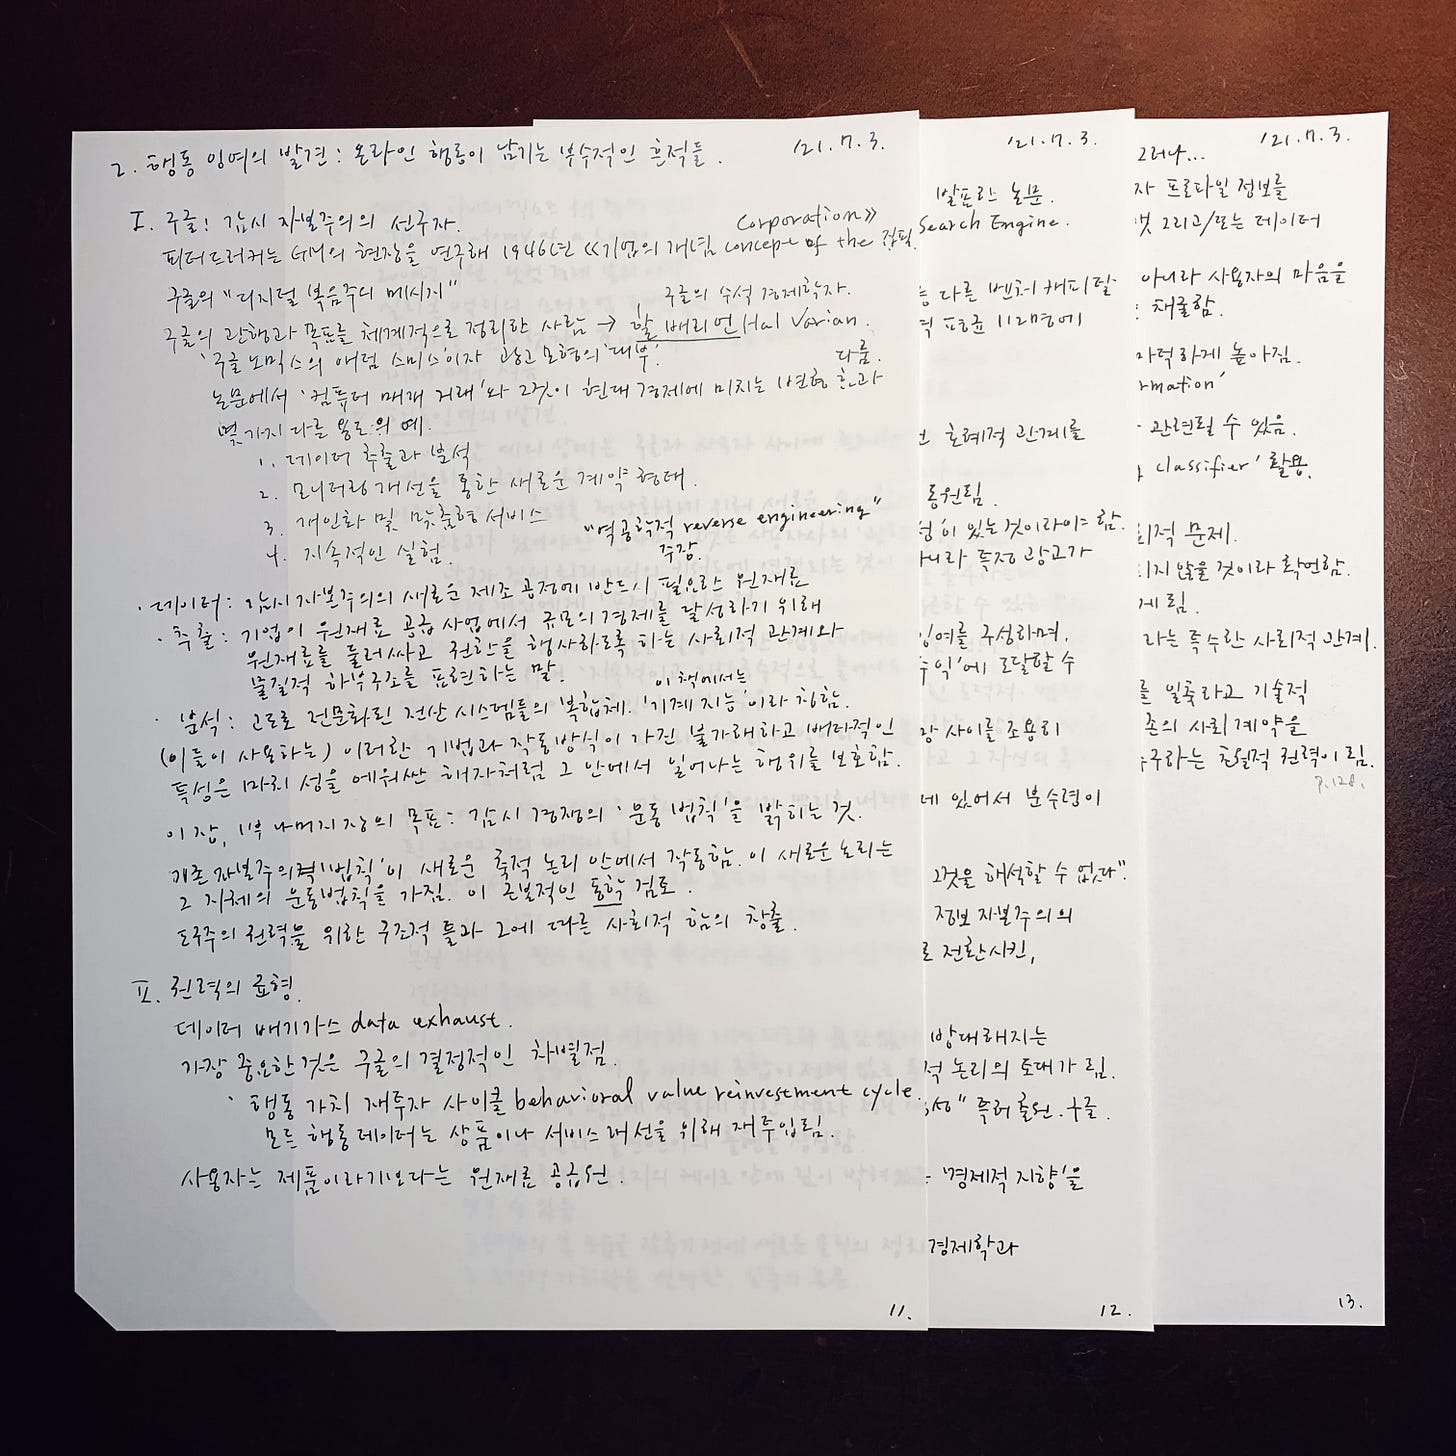 2. 행동 잉여의 발견 : 온라인 행동이 남기는 부수적인 흔적들.
'21.7.3.
I. 구글 : 감시 자본주의의 선구자.
피터드러커는 GM의 현장을 연구해 1946년 《기업의 개념 concept of the Corporation》 집필.
구글의 "디지털 복음주의 메시지"
구글의 수석 경제학자.
구글의 관행과 목표를 체계적으로 정리한 사람 → 할 배리언 Hal Varian.
'구글노믹스의 애덤 스미스'이자 광고모형의 '대부'.
논문에서 '컴퓨터 매개 거래'와 그것이 현대 경제에 미치는 변형 효과 다룸.
몇가지 다른 용도의 예.
1. 데이터 추출과 분석
2. 모니터링 개선을 통한 새로운 계약 형태.
3. 개인화 및 맞춤형 서비스
4. 지속적인 실험.
"역공학적 reverse engineering" 주장.
· 데이터 : 감시 자본주의의 새로운 제조 공정에 반드시 필요한 원재료
· 추출 : 기업이 원재료 공급 사업에서 규모의 경제를 달성하기 위해
원재료를 둘러싸고 권한을 행사하도록 하는 사회적 관계와
물질적 하부구조를 표현하는 말.
이 책에서는
· 분석 : 고도로 전문화된 전산 시스템들의 복합체. '기계 지능'이라 칭함.
(이들이 사용하는) 이러한 기법과 작동방식이 가진 불가해하고 배타적인
특성은 마치 성을 에워싼 해자처럼 그 안에서 일어나는 행위를 보호함.
이 장, 1부 나머지 장의 목표 : 감시 경쟁의 '운동 법칙'을 밝히는 것.
기존 자본주의적 '법칙'이 새로운 축적 논리 안에서 작동함. 이 새로운 논리는
그 자체의 운동법칙을 가짐. 이 근본적인 동학 검토.
도구주의 권력을 위한 구조적 틀과 그에 따른 사회적 함의 창출.
II. 권력의 균형.
데이터 배기가스 data exhaust.
가장 중요한 것은 구글의 결정적인 차별점.
· 행동 가치 재투자 사이클 behavioral value reinvestment cycle.
모든 행동데이터는 상품이나 서비스 개선을 위해 재투입됨.
사용자는 제품이라기보다는 원재료 공급원.
11.
'21.7.3.
발표한 논문.
Search Engine.
다른 벤처 캐피탈
평균 112명에
호혜적 관계를
동원됨.
있는 것이라야 함.
아니라 특정 광고가
잉여를 구성하며,
수익'에 도달할 수
사이를 조용히
있어서 분수령이
그것을 해석할 수 없다".
정보 자본주의의
로 전환시킨,
방대해지는
적 논리의 토대가 됨.
특허 출원. 구글.
'경제적 지향'을
경제학과
12.
'21.7.3.
그러나...
자 프로파일 정보를
그리고/또는 데이터
아니라 사용자의 마음을
채굴함.
높아짐.
rmation'
관련될 수 있음.
classifier' 활용.
적 문제.
되지 않을 것이라 확언함.
게 됨.
라는 특수한 사회적 관계.
를 일축하고 기술적
존의 사회계약을
구하는 초월적 권력이 됨.
p.128.
13.